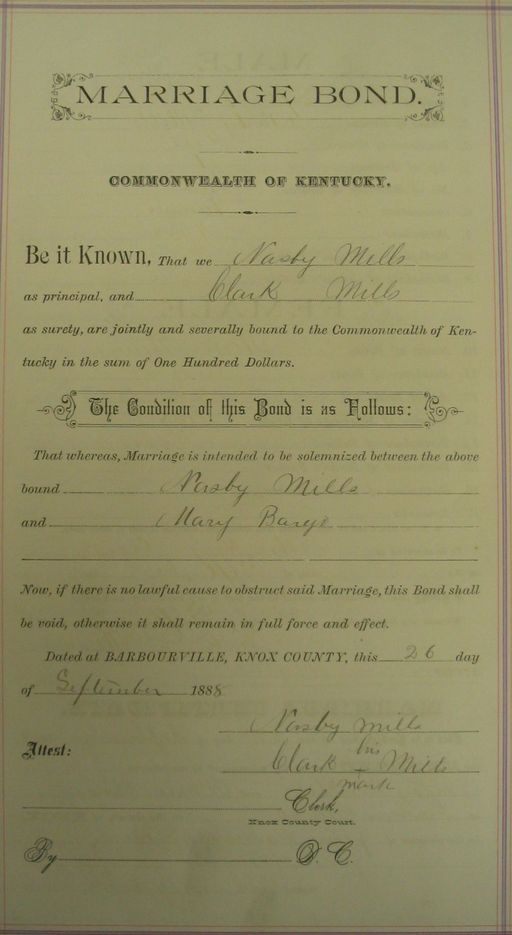 MARRIAGE BOND.
COMMONWEALTH OF KENTUCKY.
Be it Known, That we Nasby Mills
as principal, and Clark Mills
as surety, are jointly and severally bound to the Commonwealth of Ken-
tucky in the sum of One Hundred Dollars.
The Condition of this Bond is as Follows:
That whereas, Marriage is intended to be solemnized between the above
bound Nasby Mills
and Mary
Now, if there is no lawful cause to obstruct said Marriage, this Bond shall
be void, otherwise it shall remain in full force and effect.
Dated at BARBOURVILLE, KNOX COUNTY, this 26 day
of September 1888
Nasby Mills
Attest: Clark his Mills
mark
Clerk,
Knox County Court.
By D. C.